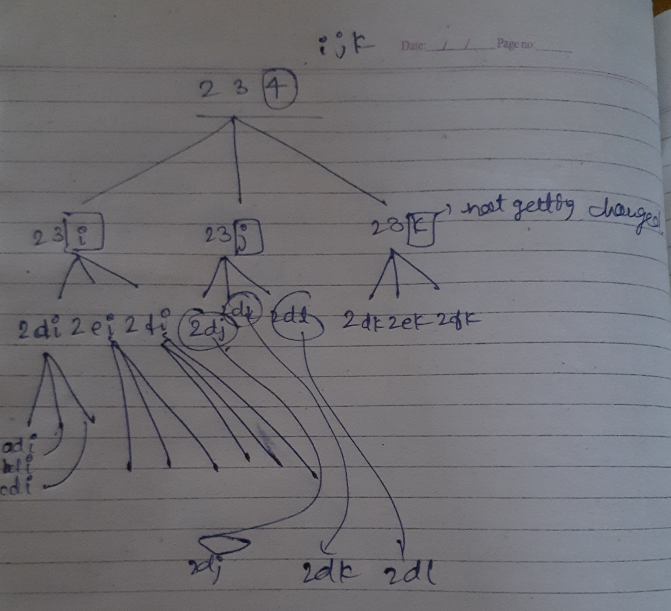 ijk Date: / / Page no:
2 3 4
23i 23j 23k not getting changed
2di 2ei 2fi 2dj 2dk 2dl 2dk 2ek 2fk
adi
bdi
cdi
2dj 2dk 2dl